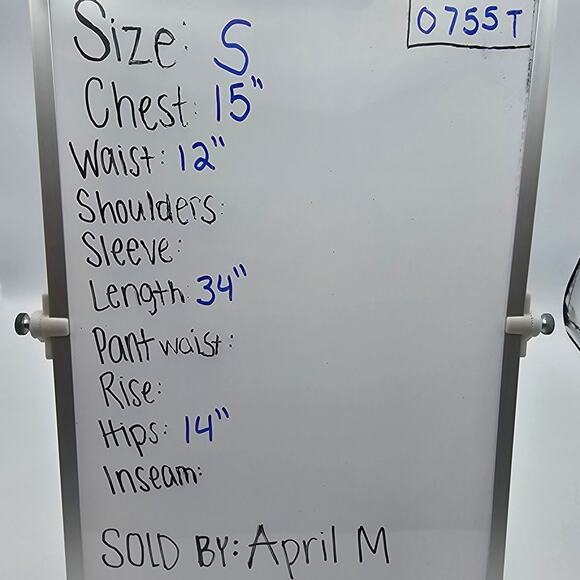 0755T
Size: S
Chest: 15"
Waist: 12"
Shoulders:
Sleeve:
Length 34"
Pant waist:
Rise:
Hips: 14"
Inseam:
SOLD BY: April M